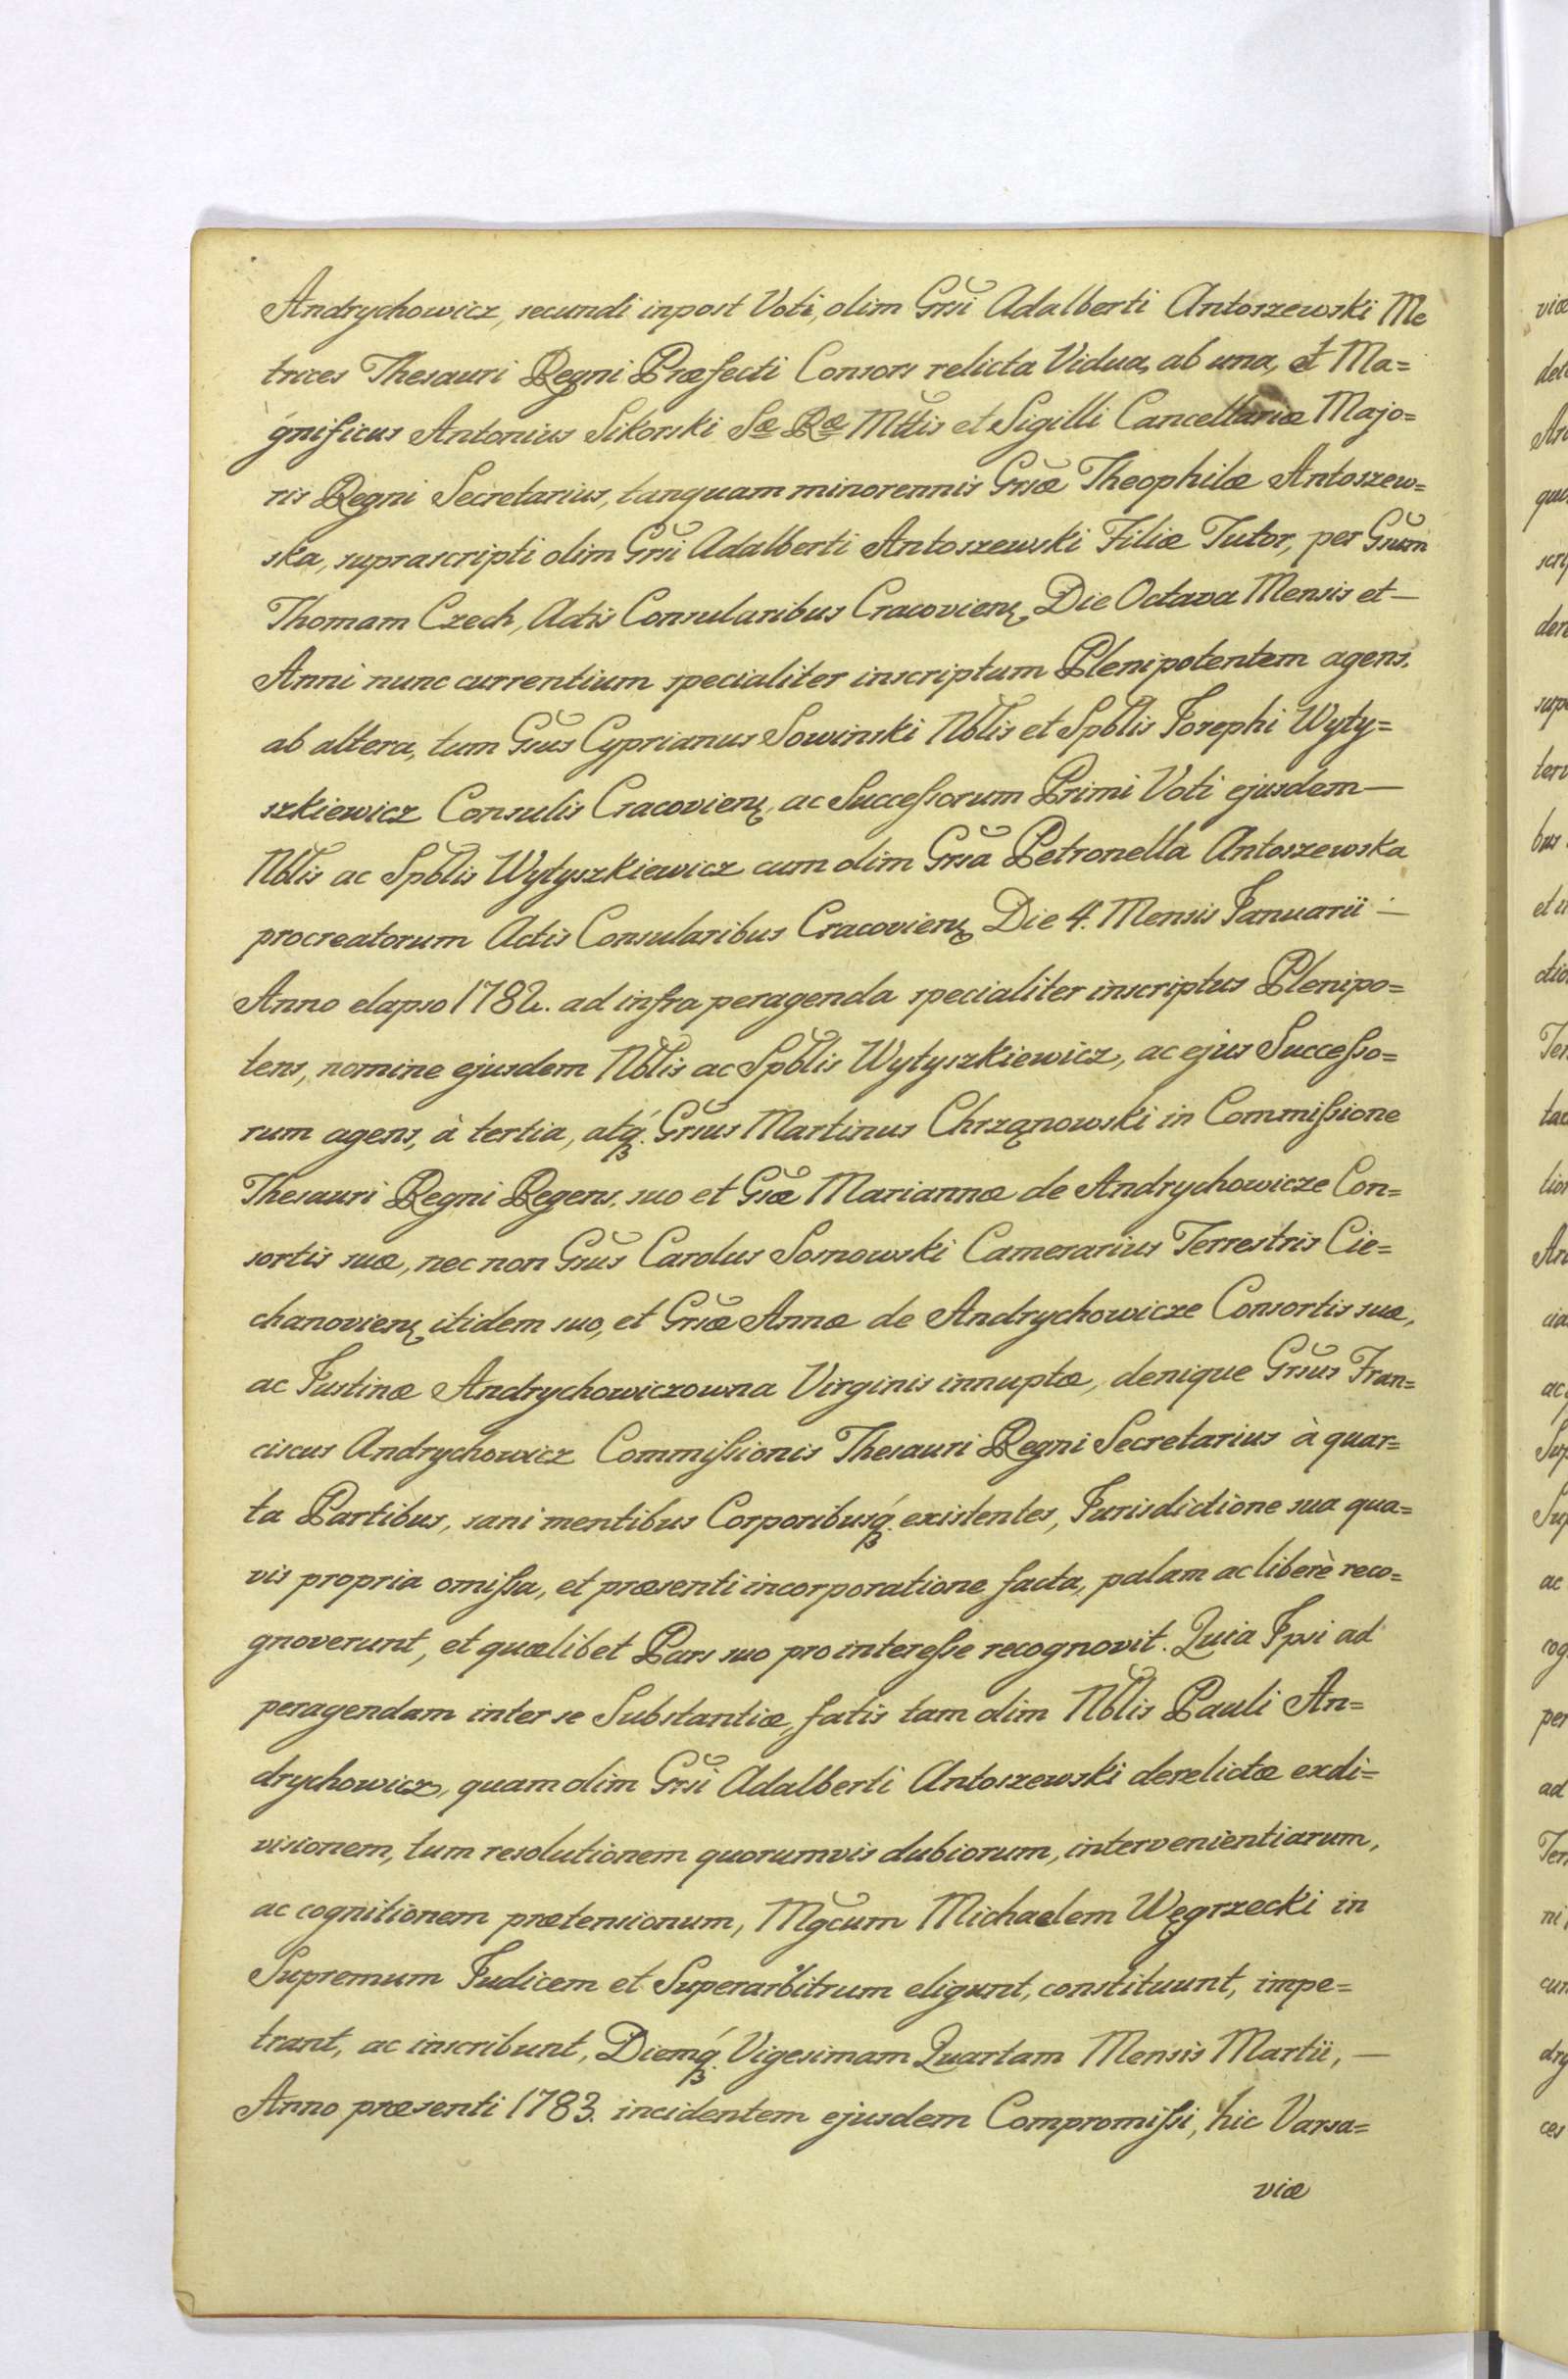 Andrychowicz, secundi inpost Voti, olim Grsi Adalberti Antoszewski Me
trices Thesauri Regni Præfecti Consors relicta Vidua, ab una, et Ma=
gnificus Antonius Sikorski Sæ Ræ Mttis et Sigilli Cancellariæ Majo=
ris Regni Secretarius, tanquam minorennis Grsæ Theophilæ Antoszew=
ska, suprascripti olim Grsi Adalberti Antoszewski Filiæ Tutor, per Gsum
Thomam Czech, Actis Consularibus Cracovien, Die Octava Mensis et —
Anni nunc currentium specialiter inscriptum Plenipotentem agens.
ab altera, tum Gsus Cyprianus Sowinski Nblis et Spblis Josephi Wyty=
szkiewicz Consulis Cracovien, ac Successorum Primi Voti ejusdem —
Nblis ac Spblis Wytyszkiewicz cum olim Grsa Petronella Antoszewska
procreatorum Actis Consularibus Cracovien, Die 4. Mensis Januarii —
Anno elapso 1782. ad infra peragenda specialiter inscriptus Plenipo=
tens, nomine ejusdem Nblis ac Spblis Wytyszkiewicz, ac ejus Successo=
rum agens, à tertia, atq. Grsus Martinus Chrząnowski in Commissione
Thesauri Regni Regens, suo et Gsæ Mariannæ de Andrychowicze Con=
sortis suæ, nec non Gsus Carolus Sosnowski Camerarius Terrestris Cie=
chanovien, itidem suo, et Grsæ Annæ de Andrychowicze Consortis suæ,
ac Justinæ Andrychowiczowna Virginis innuptæ, denique Grsus Fran=
ciscus Andrychowicz Commissionis Thesauri Regni Secretarius à quar=
ta Partibus, sani mentibus Corporibusq. existentes, Jurisdictione sua qua=
vis propria omissa, et præsenti incorporatione facta, palam ac liberè reco=
gnoverunt, et quælibet Pars suo pro interesse recognovit. Quia Ipsi ad
peragendam inter se Substantiæ, fatis tam olim Nblis Pauli An=
drychowicz, quam olim Grsi Adalberti Antoszewski derelictæ exdi=
visionem, tum resolutionem quorumvis dubiorum, intervenientiarum,
ac cognitionem prætensionum, Mgcum Michaelem Węgrzecki in
Supremum Judicem et Superarbitrum eligunt, constituunt, impe=
trant, ac inscribunt, Diemq. Vigesimam Quartam Mensis Martii, —
Anno præsenti 1783. incidentem ejusdem Compromissi, hic Varsa=
viæ